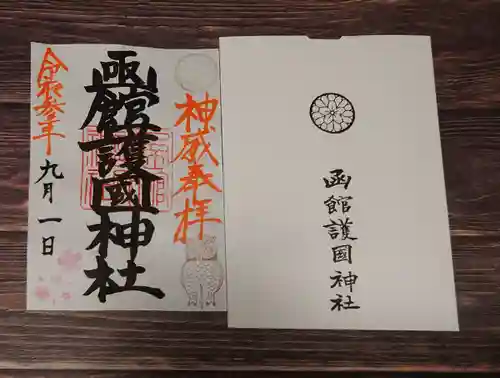 神威奉拝
函館護國神社
令和参年
九月一日
函館護國神社